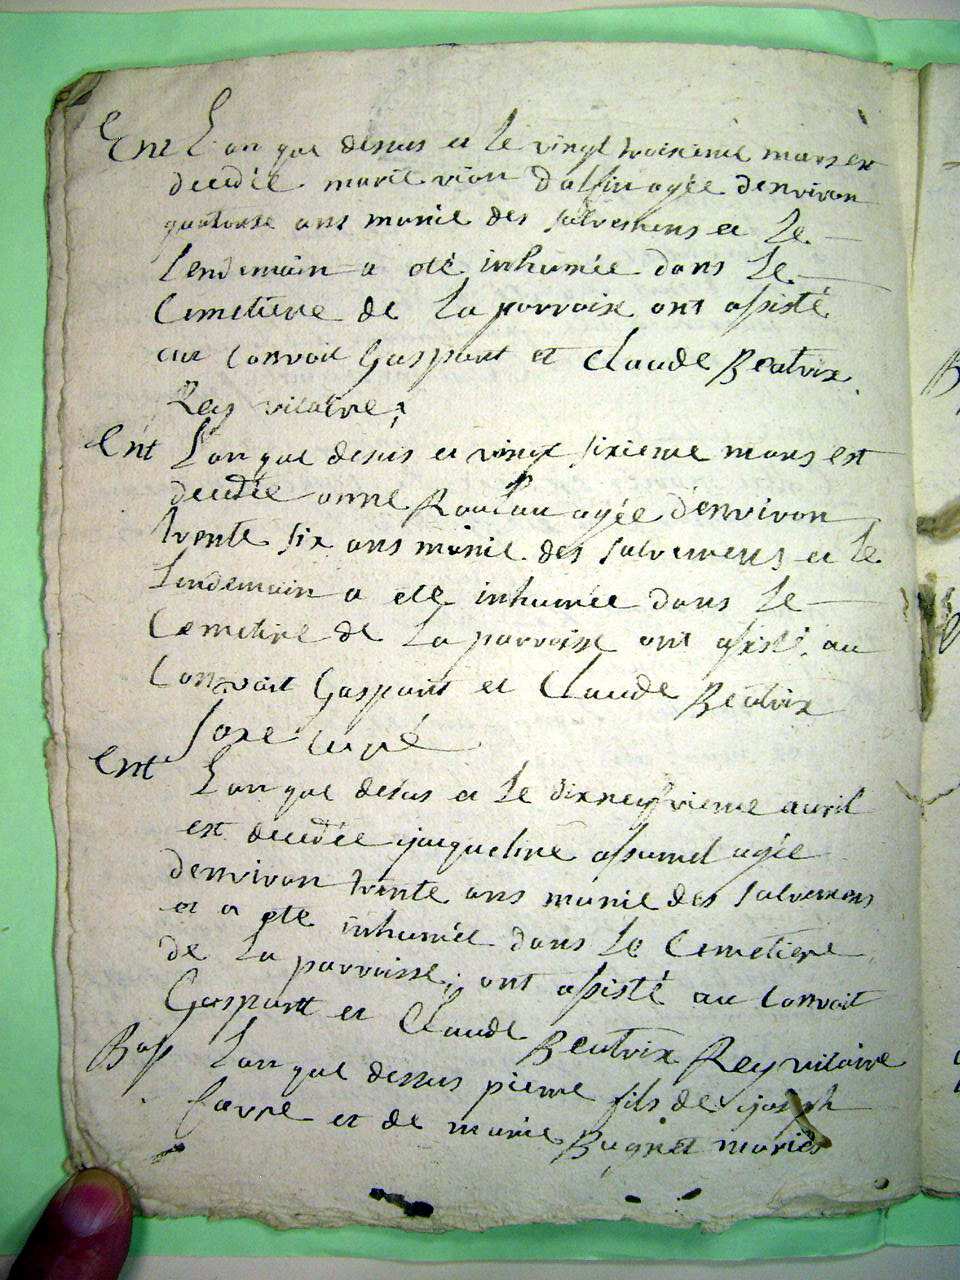 Ent L'an que dessus et le vingt troisieme mars est
decedée marie vion Dalfin agée denviron
quatorze ans munie des salvemens et le
Lendemain a eté inhumée dans le
Cemetiere de La parroisse ont assisté
au convoit Gaspart et Claude Beatrix.
Rey vicaire
Ent L'an que desus et vingt sixieme mars est
decedée anne agée d'environ
trente six ans munie des salvemens et le
Lendemain a eté inhumée dans le
Cemetire de La parroisse ont asisté au
Convoit Gaspart et Claude Beatrix
curé
Ent L'an que desus et le dixneufvieme avril
est decedée jacqueline assumel agée
denviron trente ans munie des salvemens
et a eté inhumée dans le Cemetiere
de La parroisse; ont assisté au convoit
Gaspart et Claude Beatrix Rey vicaire
Bap L'an que dessus pierre fils de joseph
favre et de marie Bugnet mariés